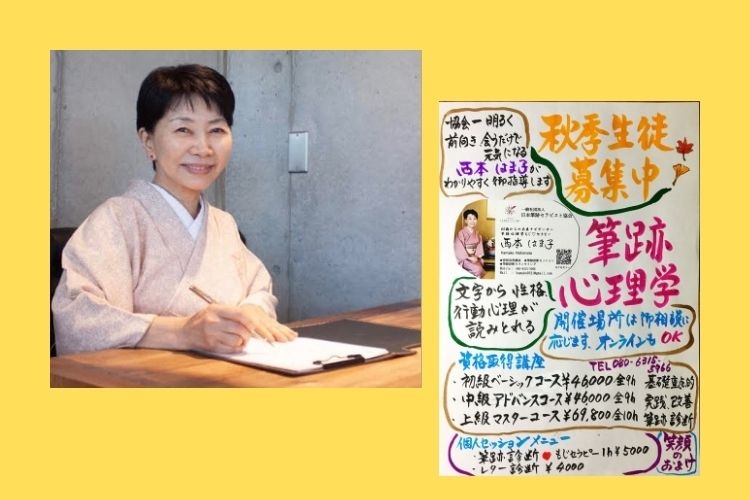 協会一 明るく
前向き 会うだけで
元気になる
西本 はま子が
わかりやすく御指導します
秋季生徒
募集中
一般社団法人
日本筆跡セラピスト協会
西本 はま子
筆跡
心理学
文字から性格、
行動心理が
読みとれる
開催場所は御相談に
応じます。オンラインも OK
TEL 080-6315-
5966
資格取得講座
・初級ベーシックコース¥46,000 全9h 基礎重点的
・中級アドバンスコース¥46,000 全9h 実践、改善
・上級マスターコース ¥69,800 全10h 筆跡診断
個人セッションメニュー
・筆跡診断 ♥もじセラピー 1h ¥5000
・レター診断 ¥4000
笑顔
の
おまけ